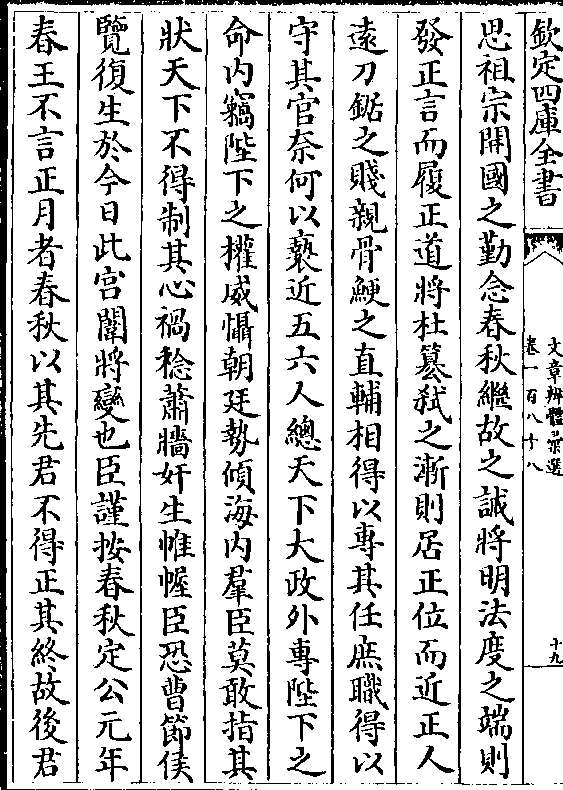 欽定四庫全書
文章辨體彚選
卷一百八十八
十九
思祖宗開國之勤念春秋繼故之誠將明法度之端則
發正言而履正道將杜篡弑之漸則居正位而近正人
逺刀鋸之賤親骨鯁之直輔相得以專其任庶職得以
守其官奈何以䙝近五六人總天下大政外專陛下之
命内竊陛下之權威懾朝廷勢傾海内羣臣莫敢指其
狀天下不得制其心禍稔蕭牆奸生帷幄臣恐曹節侯
覽復生於今日此宫闈將變也臣謹按春秋定公元年
春王不言正月者春秋以其先君不得正其終故後君